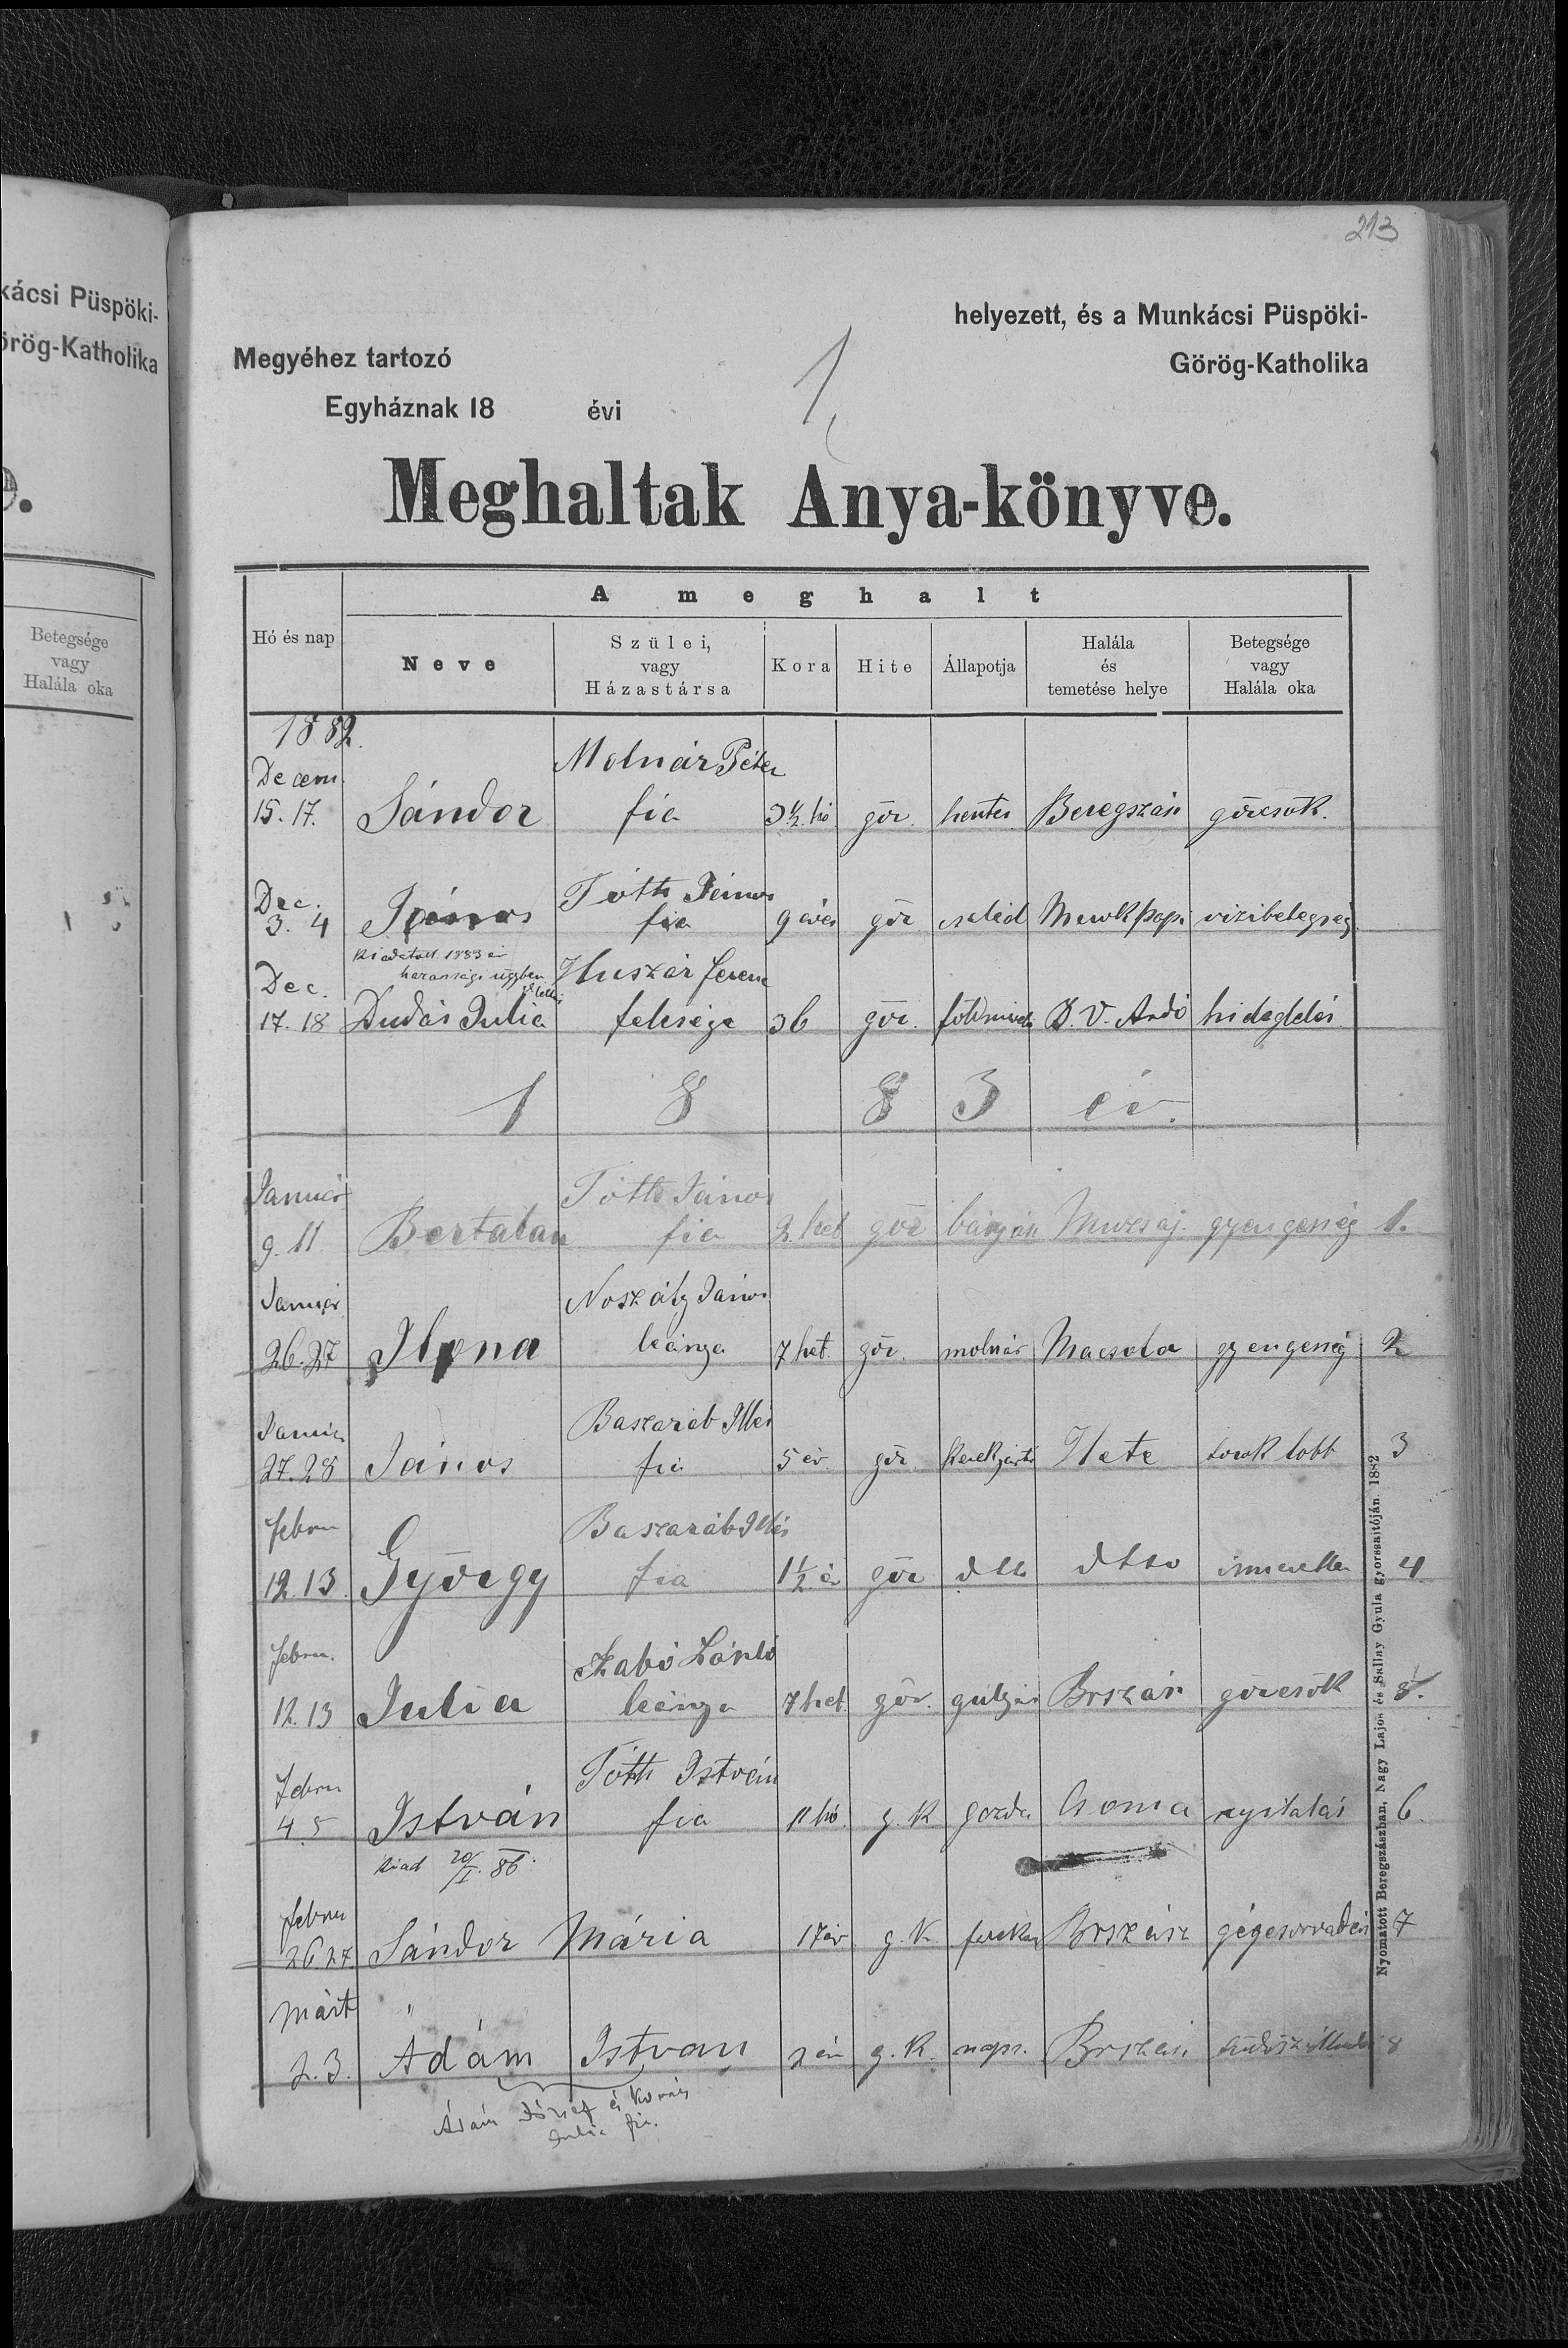 213
kácsi Püspöki-
örög-Katholika
helyezett, és a Munkácsi Püspöki-
Megyéhez tartozó
Görög-Katholika
1
Egyháznak 18 évi
Meghaltak Anya-könyve.
A meghalt
Hó és nap
Neve
Szülei,
vagy
Házastársa
Kora
Hite
Állapotja
Halála
és
temetése helye
Betegsége
vagy
Halála oka
Betegsége
vagy
Halála oka
1882.
Decem. Molnár Péter
15. 17. Sándor fia 3 1/2 hó gör. hentes Beregszász görcsök.
Dec. Tóth János
3. 4 János fia 9 éves gör cseléd vizibetegség
Kiadatott 1883 év
Dec. Huszár Ferenc
17. 18 Dudás Julia felesége 36 gör. földmives B. V. Ardó hideglelés
1 8 8 3 év.
Január Tóth János
9. 11. Bertalan fia 2. het gör gyengeség 1.
Január Noszály János
26. 27 Ilona leánya 7 het. gör. molnár Macsola gyengeség 2
Január Baszaráb Illés
27. 28 János fia 5 év. gör. Hete torok lobb 3
Febru Baszaráb Illés
12. 13. György fia 1 1/2 é gör dtto dtto ismeretlen 4
Febru. Szabó László
12. 13 Julia leánya 7 het. gör. gulyás Brszász görcsök
Febru Tóth István
4. 5 István fia 11 hó. g. k gazda Csoma 6.
Kiad 20/I. 86.
Febru
26. 27. Sándor Mária 17 év g. k. Brszász gégesorvadás 7
Márt "
2. 3. Adám Istvan g. k. naps. Brszász 8
Ádám József és Kovács
Julia fia.
Nyomatott Beregszászban, Nagy Lajos és Sallay Gyula gyorssajtóján. 1882